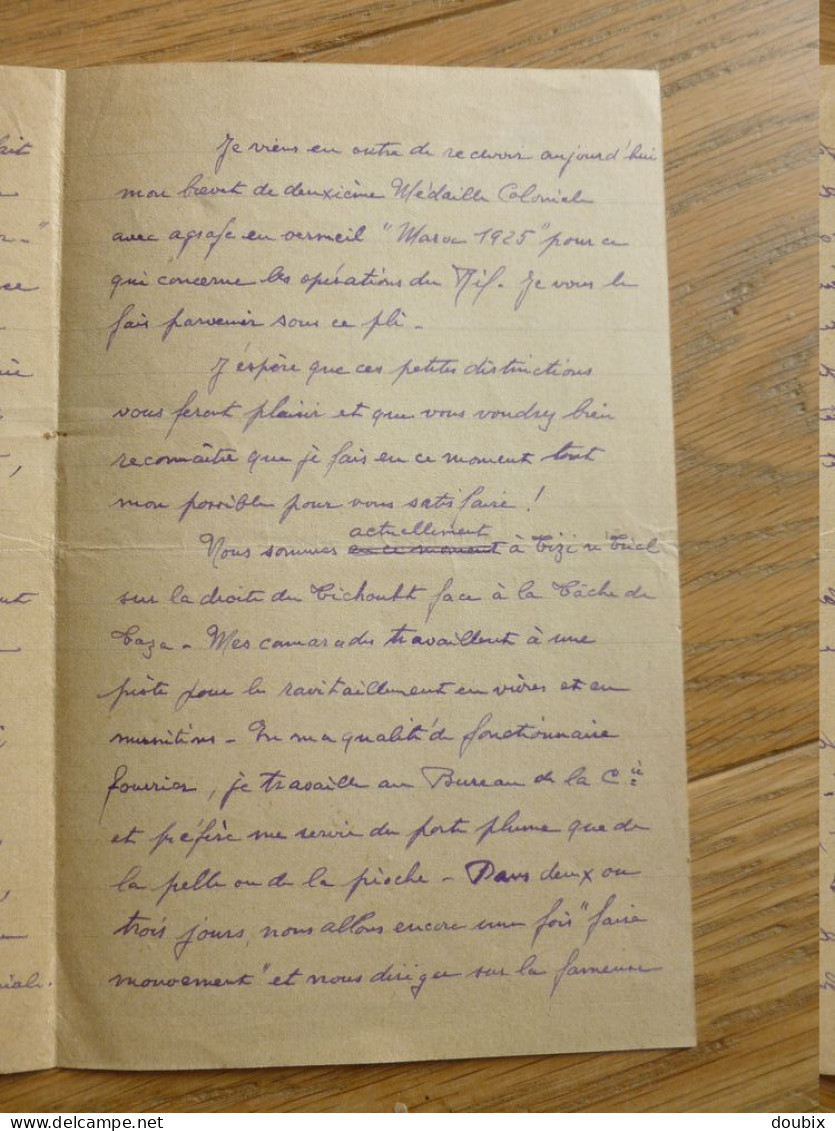 Je viens en outre de recevoir aujourd'hui
mon brevet de deuxième Médaille Coloniale
avec agrafe en vermeil "Maroc 1925" pour ce
qui concerne les opérations du Rif. Je vous le
fais parvenir sous ce pli -
J'espère que ces petites distinctions
vous feront plaisir et que vous voudrez bien
reconnaître que je fais en ce moment tout
mon possible pour vous satisfaire !
actuellement
Nous sommes en ce moment à Tizi n'
sur la droite du face à la Tâche de
Taza - Mes camarades travaillent à une
piste pour le ravitaillement en vivres et en
munitions - En ma qualité de fonctionnaire
fourrier, je travaille au Bureau de la Cie
et préfère me servir du porte plume que de
la pelle ou de la pioche - Dans deux ou
trois jours, nous allons encore une fois "faire
mouvement" et nous diriger sur la fameuse
doubix